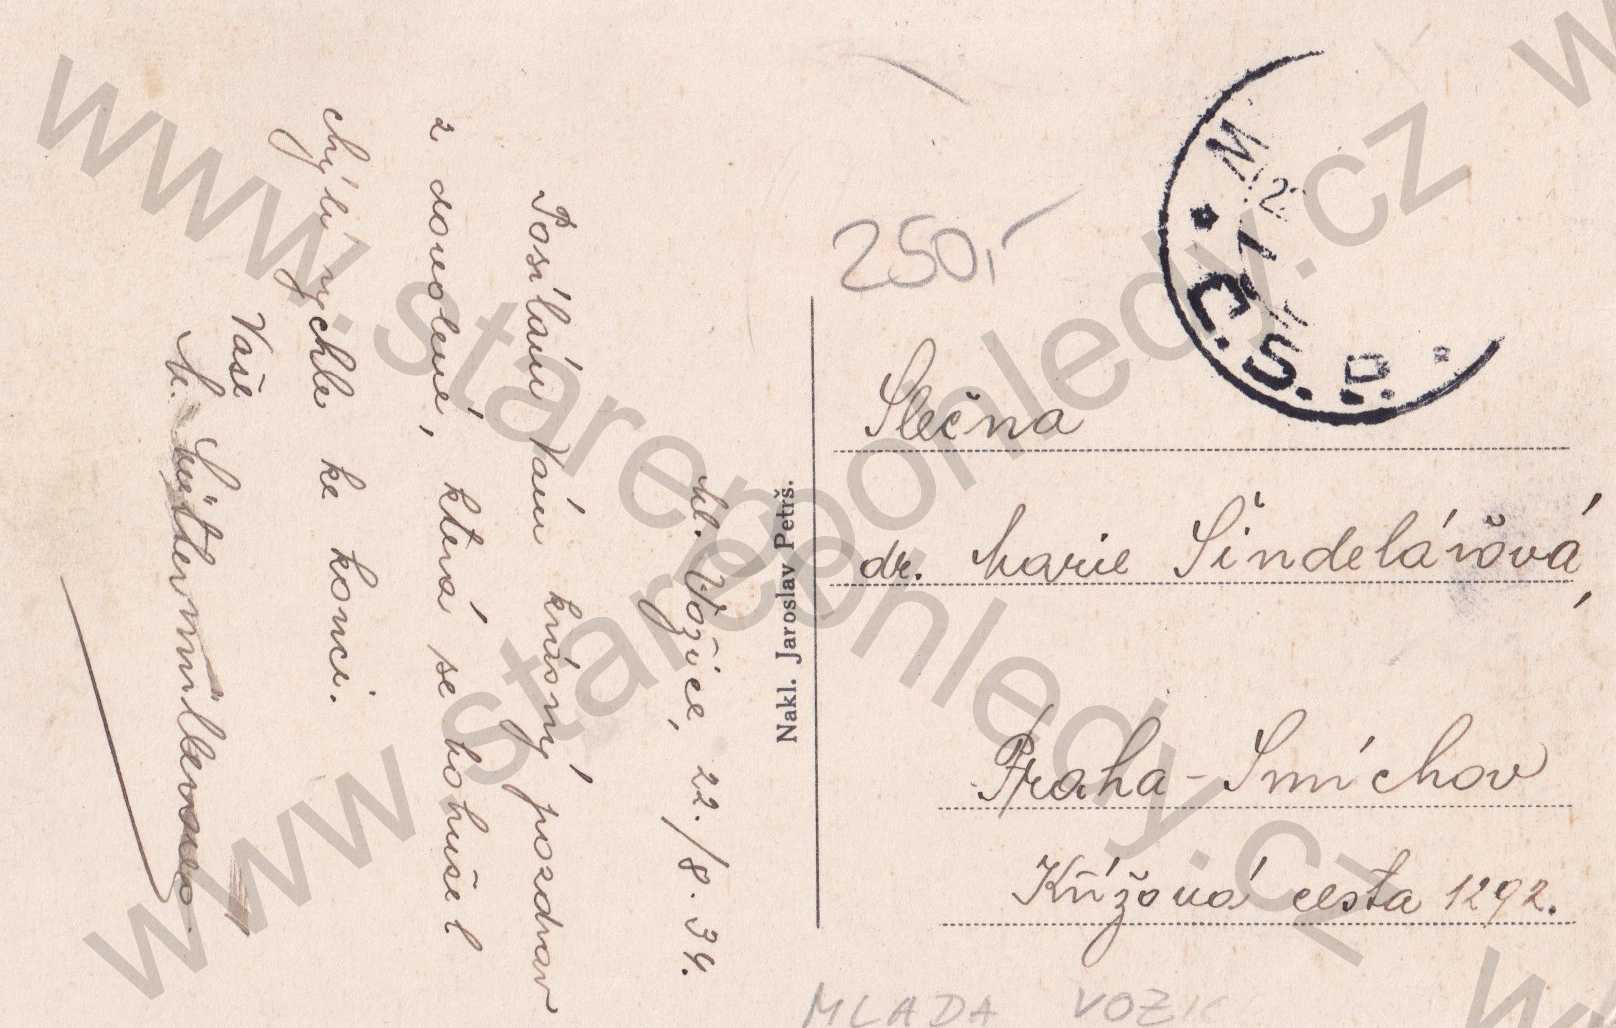 Ml. Vožice, 22./8. 34.
Posílám Vám krásný pozdrav
z dovolené, která se bohužel
chýlí rychle ke konci.
Vaše
M.
Nakl. Jaroslav Petrš.
250,-
Č.S.P.
Slečna
dr. Marie Šindelářová,
Praha-Smíchov
Křížová cesta 1292.
MLADA VOZIC
www.starepohledy.cz
www.starepohledy.cz